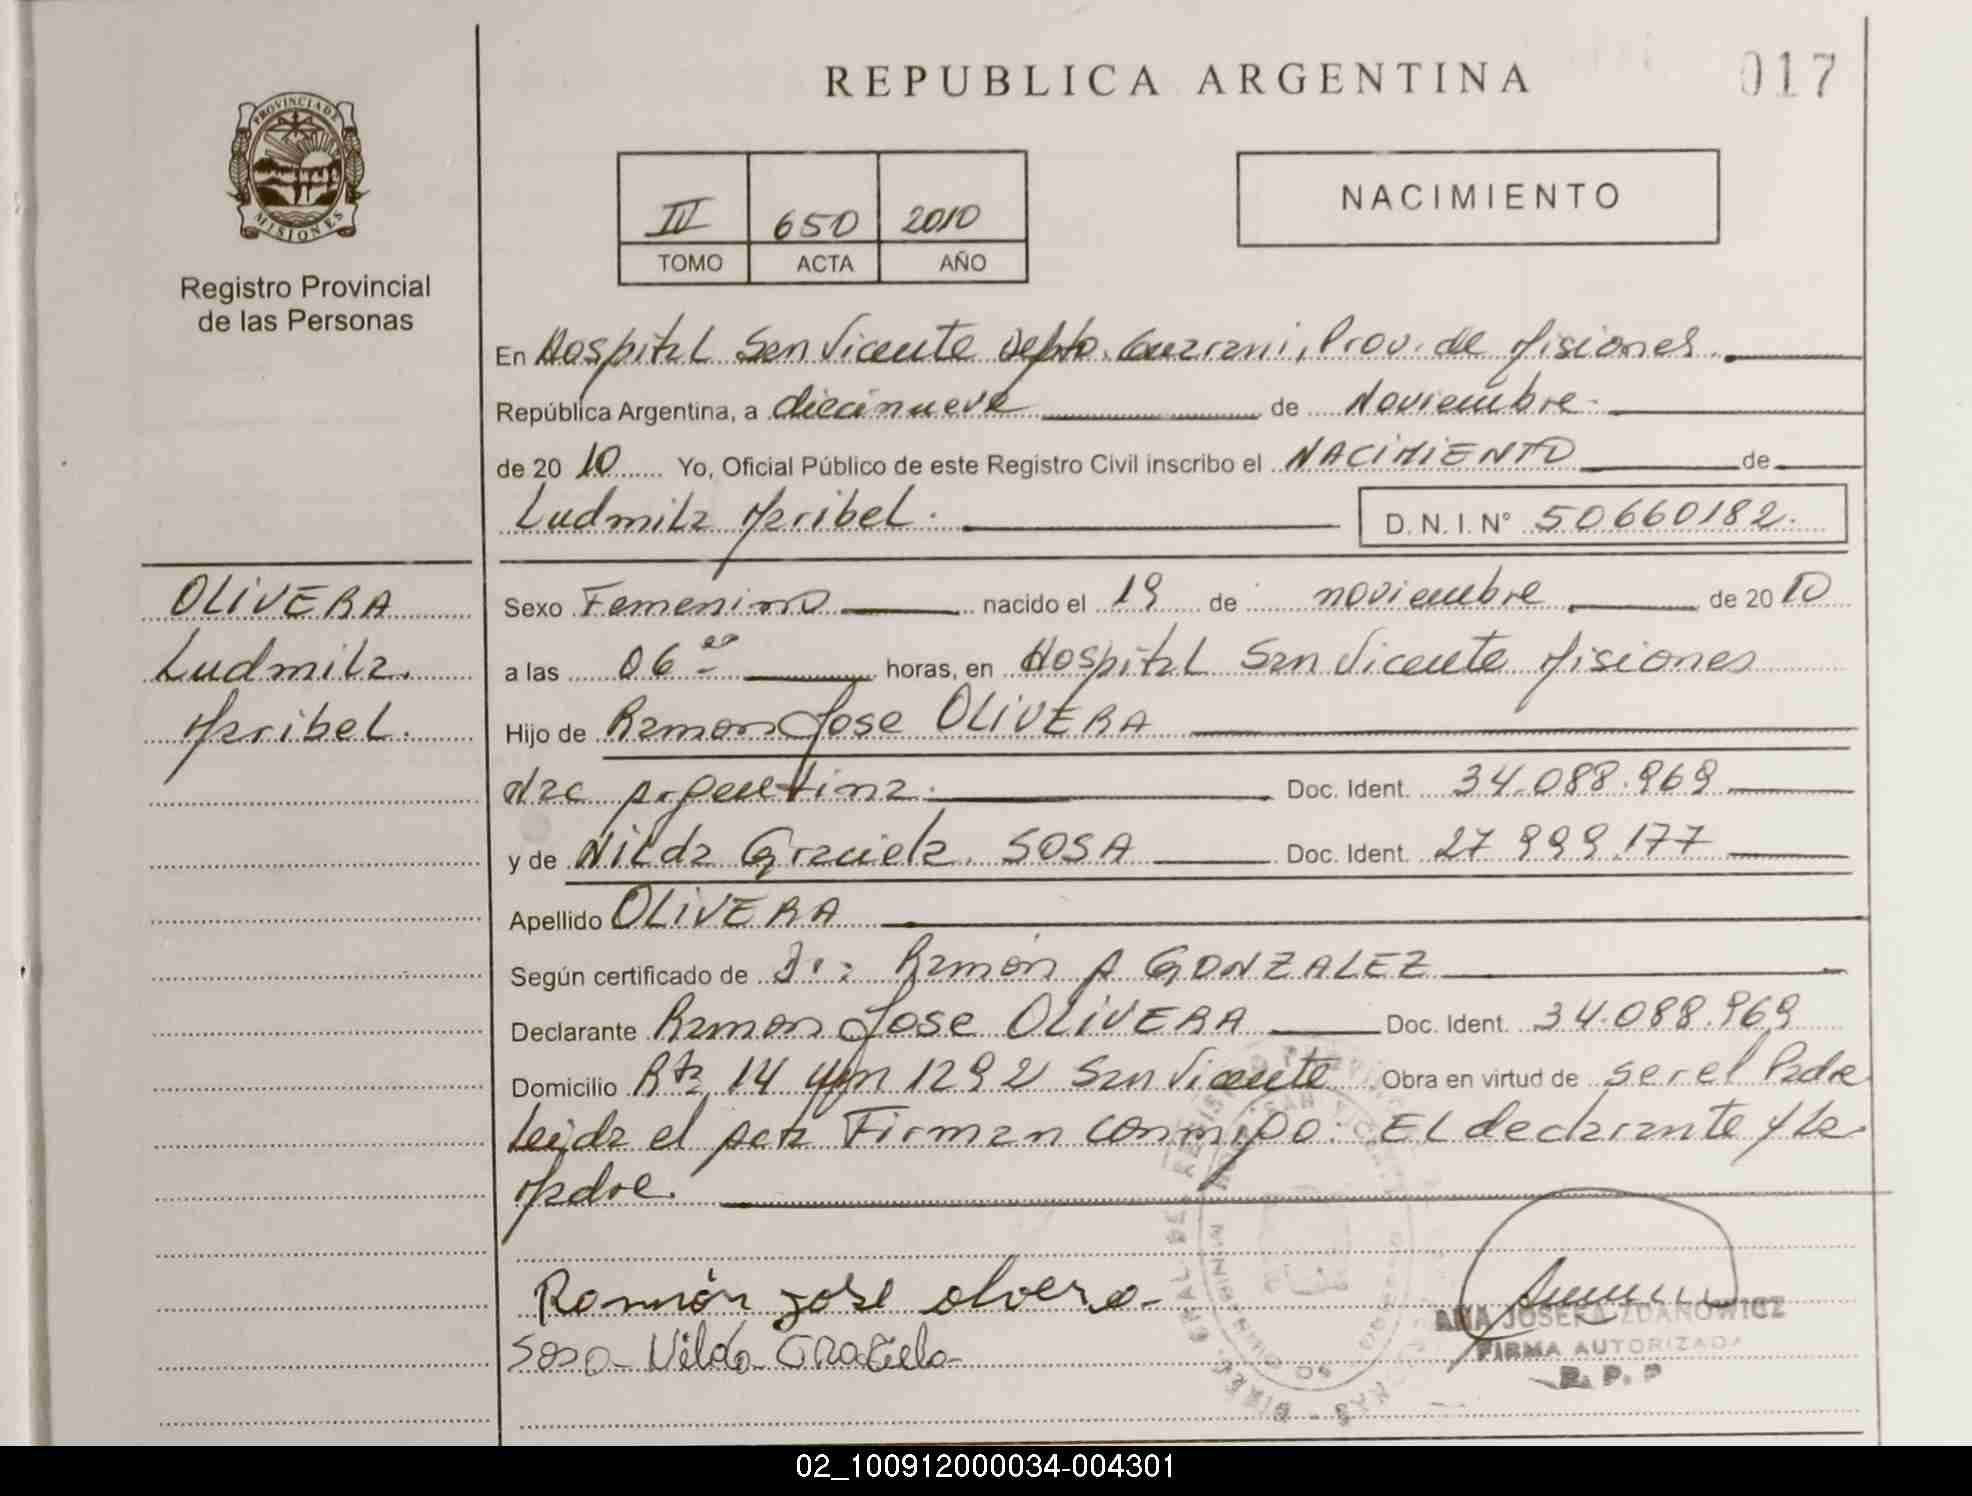 REPUBLICA ARGENTINA
017
PROVINCIA DE
MISIONES
Registro Provincial
de las Personas
IV 650 2010
TOMO ACTA AÑO
NACIMIENTO
En Hospital San Vicente Depto. Guarani, Prov. de Misiones.
República Argentina, a diecinueve de Noviembre.
de 2010 Yo, Oficial Público de este Registro Civil inscribo el NACIMIENTO de
Ludmila Maribel. D. N. I. N° 50660182.
OLIVERA
Ludmila.
Maribel.
Sexo Femenino nacido el 19 de noviembre de 2010
a las 06 horas, en Hospital San Vicente Misiones
Hijo de Ramon Jose OLIVERA
Nac Argentina. Doc. Ident. 34.088.969
y de Nilda Graciela SOSA Doc. Ident. 27 999.177
Apellido OLIVERA
Según certificado de Ramón A GONZALEZ
Declarante Ramon Jose OLIVERA Doc. Ident. 34.088.969
Domicilio Rta 14 Km 1292 San Vicente Obra en virtud de ser el Padre
Leida el acta Firman conmigo: EL declarante y la
Madre.
Ramón jose olivera
Sosa Nilda Graciela
ANA JOSEFA ZDANOWICZ
FIRMA AUTORIZADA
R. P. P
02_100912000034-004301